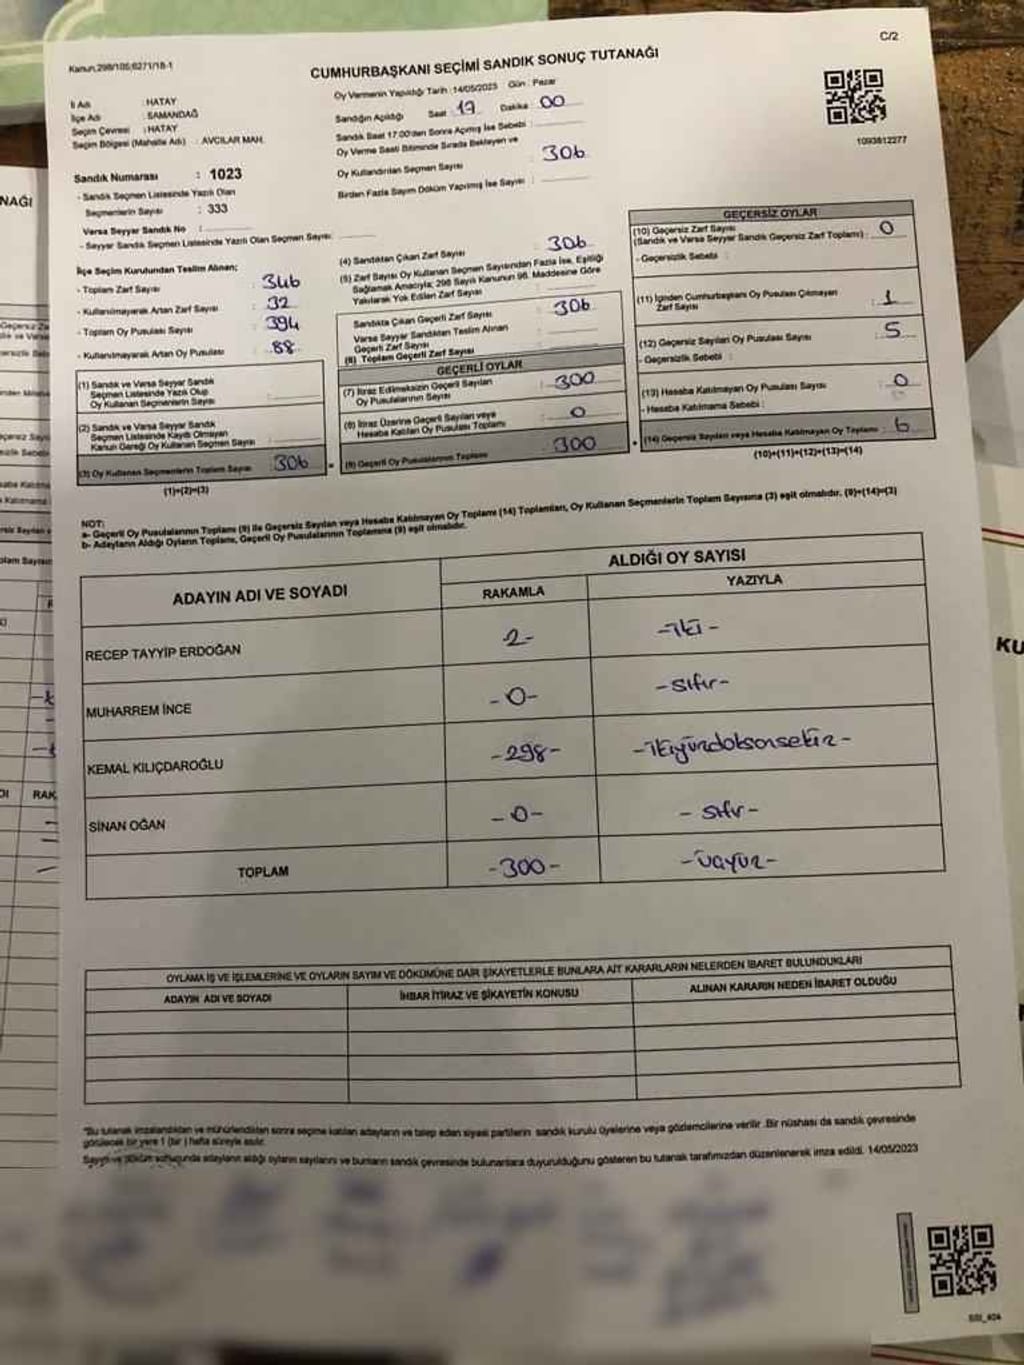 Kanun.298/105;6271/18-1
C/2
CUMHURBAŞKANI SEÇİMİ SANDIK SONUÇ TUTANAĞI
İl Adı : HATAY
İlçe Adı : SAMANDAĞ
Seçim Çevresi : HATAY
Seçim Bölgesi (Mahalle Adı) : AVCILAR MAH.
Oy Vermenin Yapıldığı Tarih :14/05/2023 Gün : Pazar
Sandığın Açıldığı Saat 17 Dakika 00
Sandık Saat 17.00'den Sonra Açımış İse Sebebi :
Oy Verme Saati Bitiminde Sırada Bekleyen ve
Oy Kullandırılan Seçmen Sayısı : 306
Birden Fazla Sayım Döküm Yapılmış İse Sayısı :
1093812277
Sandık Numarası : 1023
- Sandık Seçmen Listesinde Yazılı Olan
Seçmenlerin Sayısı : 333
Varsa Seyyar Sandık No :
- Seyyar Sandık Seçmen Listesinde Yazılı Olan Seçmen Sayısı:
İlçe Seçim Kurulundan Teslim Alınan;
- Toplam Zarf Sayısı : 346
- Kullanılmayarak Artan Zarf Sayısı : 32
- Toplam Oy Pusulası Sayısı : 394
- Kullanılmayarak Artan Oy Pusulası : 88
(1) Sandık ve Varsa Seyyar Sandık
Seçmen Listesinde Yazılı Olup
Oy Kullanan Seçmenlerin Sayısı :
(2) Sandık ve Varsa Seyyar Sandık
Seçmen Listesinde Kayıtlı Olmayan
Kanun Gereği Oy Kullanan Seçmen Sayısı :
(3) Oy Kullanan Seçmenlerin Toplam Sayısı :306
(1)+(2)=(3)
(4) Sandıktan Çıkan Zarf Sayısı : 306
(5) Zarf Sayısı Oy Kullanan Seçmen Sayısından Fazla İse, Eşitliği
Sağlamak Amacıyla; 298 Sayılı Kanunun 98. Maddesine Göre
Yakılarak Yok Edilen Zarf Sayısı :
Sandıkta Çıkan Geçerli Zarf Sayısı : 306
Varsa Seyyar Sandıktan Teslim Alınan
Geçerli Zarf Sayısı :
(6) Toplam Geçerli Zarf Sayısı
GEÇERLİ OYLAR
(7) İtiraz Edilmeksizin Geçerli Sayılan
Oy Pusulalarının Sayısı : 300
(8) İtiraz Üzerine Geçerli Sayılan veya
Hesaba Katılan Oy Pusulası Toplamı : 0
(9) Geçerli Oy Pusulalarının Toplamı : 300
GEÇERSİZ OYLAR
(10) Geçersiz Zarf Sayısı
(Sandık ve Varsa Seyyar Sandık Geçersiz Zarf Toplamı) : 0
- Geçersizlik Sebebi :
(11) İçinden Cumhurbaşkanı Oy Pusulası Çıkmayan
Zarf Sayısı : 1
(12) Geçersiz Sayılan Oy Pusulası Sayısı : 5
- Geçersizlik Sebebi :
(13) Hesaba Katılmayan Oy Pusulası Sayısı : 0
- Hesaba Katılmama Sebebi :
(14) Geçersiz Sayılan veya Hesaba Katılmayan Oy Toplamı : 6
(10)+(11)+(12)+(13)=(14)
NOT:
a- Geçerli Oy Pusulalarının Toplamı (9) İle Geçersiz Sayılan veya Hesaba Katılmayan Oy Toplamı (14) Toplamları, Oy Kullanan Seçmenlerin Toplam Sayısına (3) eşit olmalıdır. (9)+(14)=(3)
b- Adayların Aldığı Oyların Toplamı, Geçerli Oy Pusulalarının Toplamına (9) eşit olmalıdır.
ADAYIN ADI VE SOYADI
ALDIĞI OY SAYISI
RAKAMLA YAZIYLA
RECEP TAYYİP ERDOĞAN -2- -iki-
MUHARREM İNCE -0- -sıfır-
KEMAL KILIÇDAROĞLU -298- -ikiyüzdoksansekiz-
SİNAN OĞAN -0- -sıfır-
TOPLAM -300- -üçyüz-
OYLAMA İŞ VE İŞLEMLERİNE VE OYLARIN SAYIM VE DÖKÜMÜNE DAİR ŞİKAYETLERLE BUNLARA AİT KARARLARIN NELERDEN İBARET BULUNDUKLARI
ADAYIN ADI VE SOYADI İHBAR İTİRAZ VE ŞİKAYETİN KONUSU ALINAN KARARIN NEDEN İBARET OLDUĞU
*Bu tutanak imzalandıktan ve mühürlendikten sonra seçime katılan adayların ve talep eden siyasi partilerin sandık kurulu üyelerine veya gözlemcilerine verilir .Bir nüshası da sandık çevresinde
görülecek bir yere 1 (bir ) hafta süreyle asılır.
Sayım ve döküm sonucunda adayların aldığı oyların sayılarını ve bunların sandık çevresinde bulunanlara duyurulduğunu gösteren bu tutanak tarafımızdan düzenlenerek imza edildi. 14/05/2023
NAĞI
RAK
KU